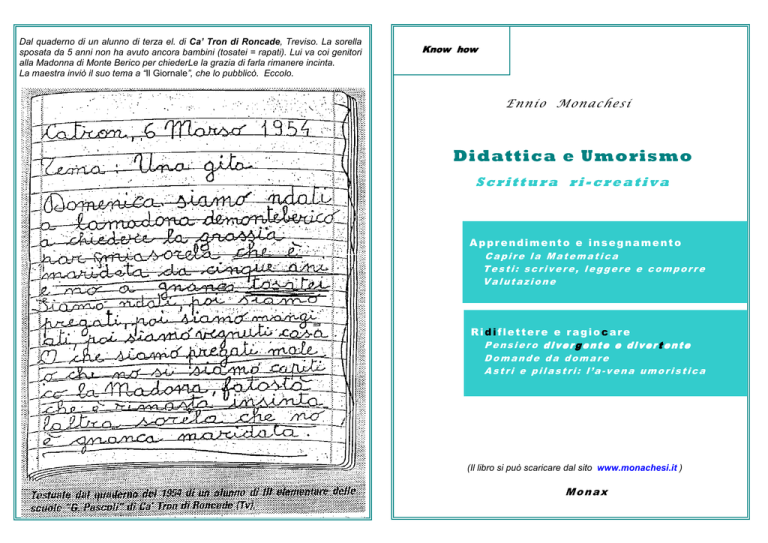 Dal quaderno di un alunno di terza el. di Ca' Tron di Roncade, Treviso. La sorella
sposata da 5 anni non ha avuto ancora bambini (tosatei = rapati). Lui va coi genitori
alla Madonna di Monte Berico per chiederLe la grazia di farla rimanere incinta.
La maestra inviò il suo tema a "Il Giornale", che lo pubblicò. Eccolo.
Catron, 6 Marso 1954
Tema: Una gita
Domenica siamo ndati
a lamadona demonteberico
a chiedere la grassia
par mia sorela che è
maridata da cinque ani
e no a gnanca tosatei
Siamo ndati, poi siamo
pregati, poi siamo mangi
ati, poi siamo vegnuti casa
O che siamo pregati male
o che no si siamo capiti
co la Madona, fatostà
che è rimasta insinta
laltra sorela che no
è gnanca maridata.
Testuale dal quaderno del 1954 di un alunno di III elementare delle
scuole "G. Pascoli" di Ca' Tron di Roncade (Tv).
Know how
Ennio Monachesi
Didattica e Umorismo
Scrittura ri-creativa
Apprendimento e insegnamento
Capire la Matematica
Testi: scrivere, leggere e comporre
Valutazione
Ridiflettere e ragiocare
Pensiero divergente e divertente
Domande da domare
Astri e pilastri: l'a-vena umoristica
(Il libro si può scaricare dal sito www.monachesi.it )
Monax